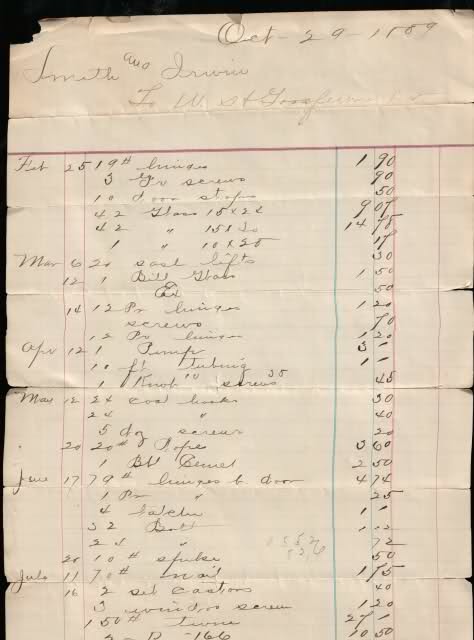 Oct - 29 - 1889
Smith and Irwin
To W. H.
Feb 25 19# hinges 1 90
3 Gr screws 90
10 door stops 50
42 Glass 15x24 9 07
42 " 15x30 14 78
1 " 10x25 17
Mar 6 20 sash lifts 30
12 1 Bill Glass 1 50
Ex 50
14 12 Pr hinges 1 20
screws 70
12 Pr hinges 1 20
Apr 12 1 Pump 3
10 ft tubing 1
1 Knob 10 screws 35 45
May 12 24 coat hooks 30
24 " 40
5 doz screws 20
20 20# Rope 3 60
1 Bbl Cement 2 50
June 17 79# hinges b. door 4 74
1 Pr " 25
4 Latches 1
32 Bolt 1 12
24 " 72
20 10# spike 50
July 11 70# nail 1 75
16 2 set castors 40
3 window screen 1 20
150# twine 27
2 166 10 50